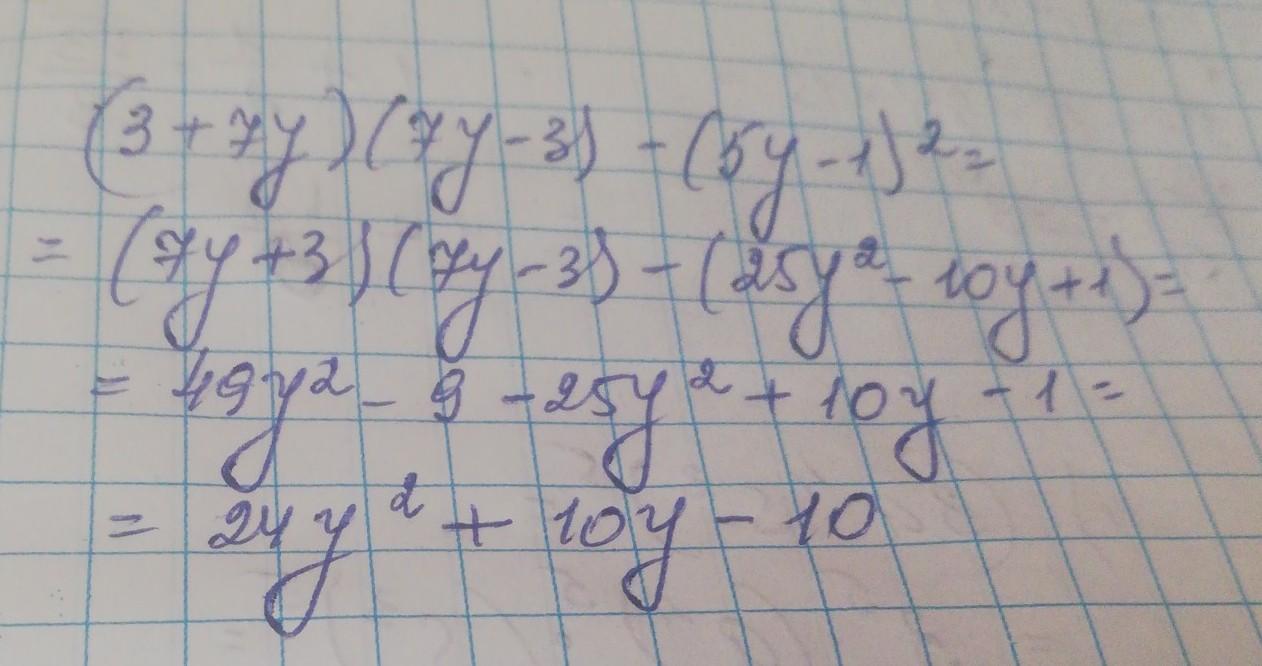 (3 + 7y)(7y - 3) - (5y - 1)² =
= (7y + 3)(7y - 3) - (25y² - 10y + 1) =
= 49y² - 9 - 25y² + 10y - 1 =
= 24y² + 10y - 10